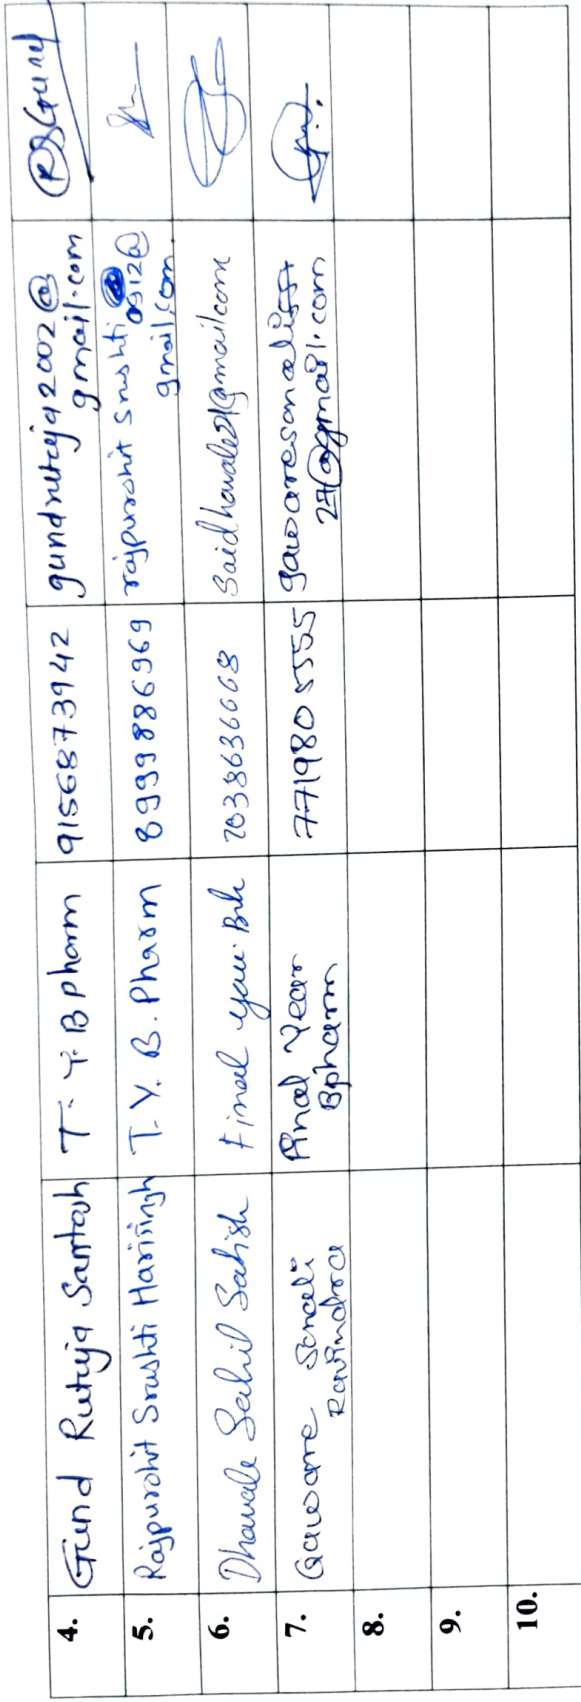 4. Gund Rutuja Santosh T. Y. B pharm 9156873942 gundrutuja2002@
gmail.com RSGund
5. Rajpurohit Srushti Harisingh T. Y. B. Pharm 8999886969 rajpurohit srushti
0912@
gmail.com
6. Dhawale Sahil Satish Final year 7038636668 Saidhawale21@gmail.com
7. Gaware Sonali
Ravindra Final Year
Bpharm 7719805555 gawaresonali
27@gmail.com
8.
9.
10.